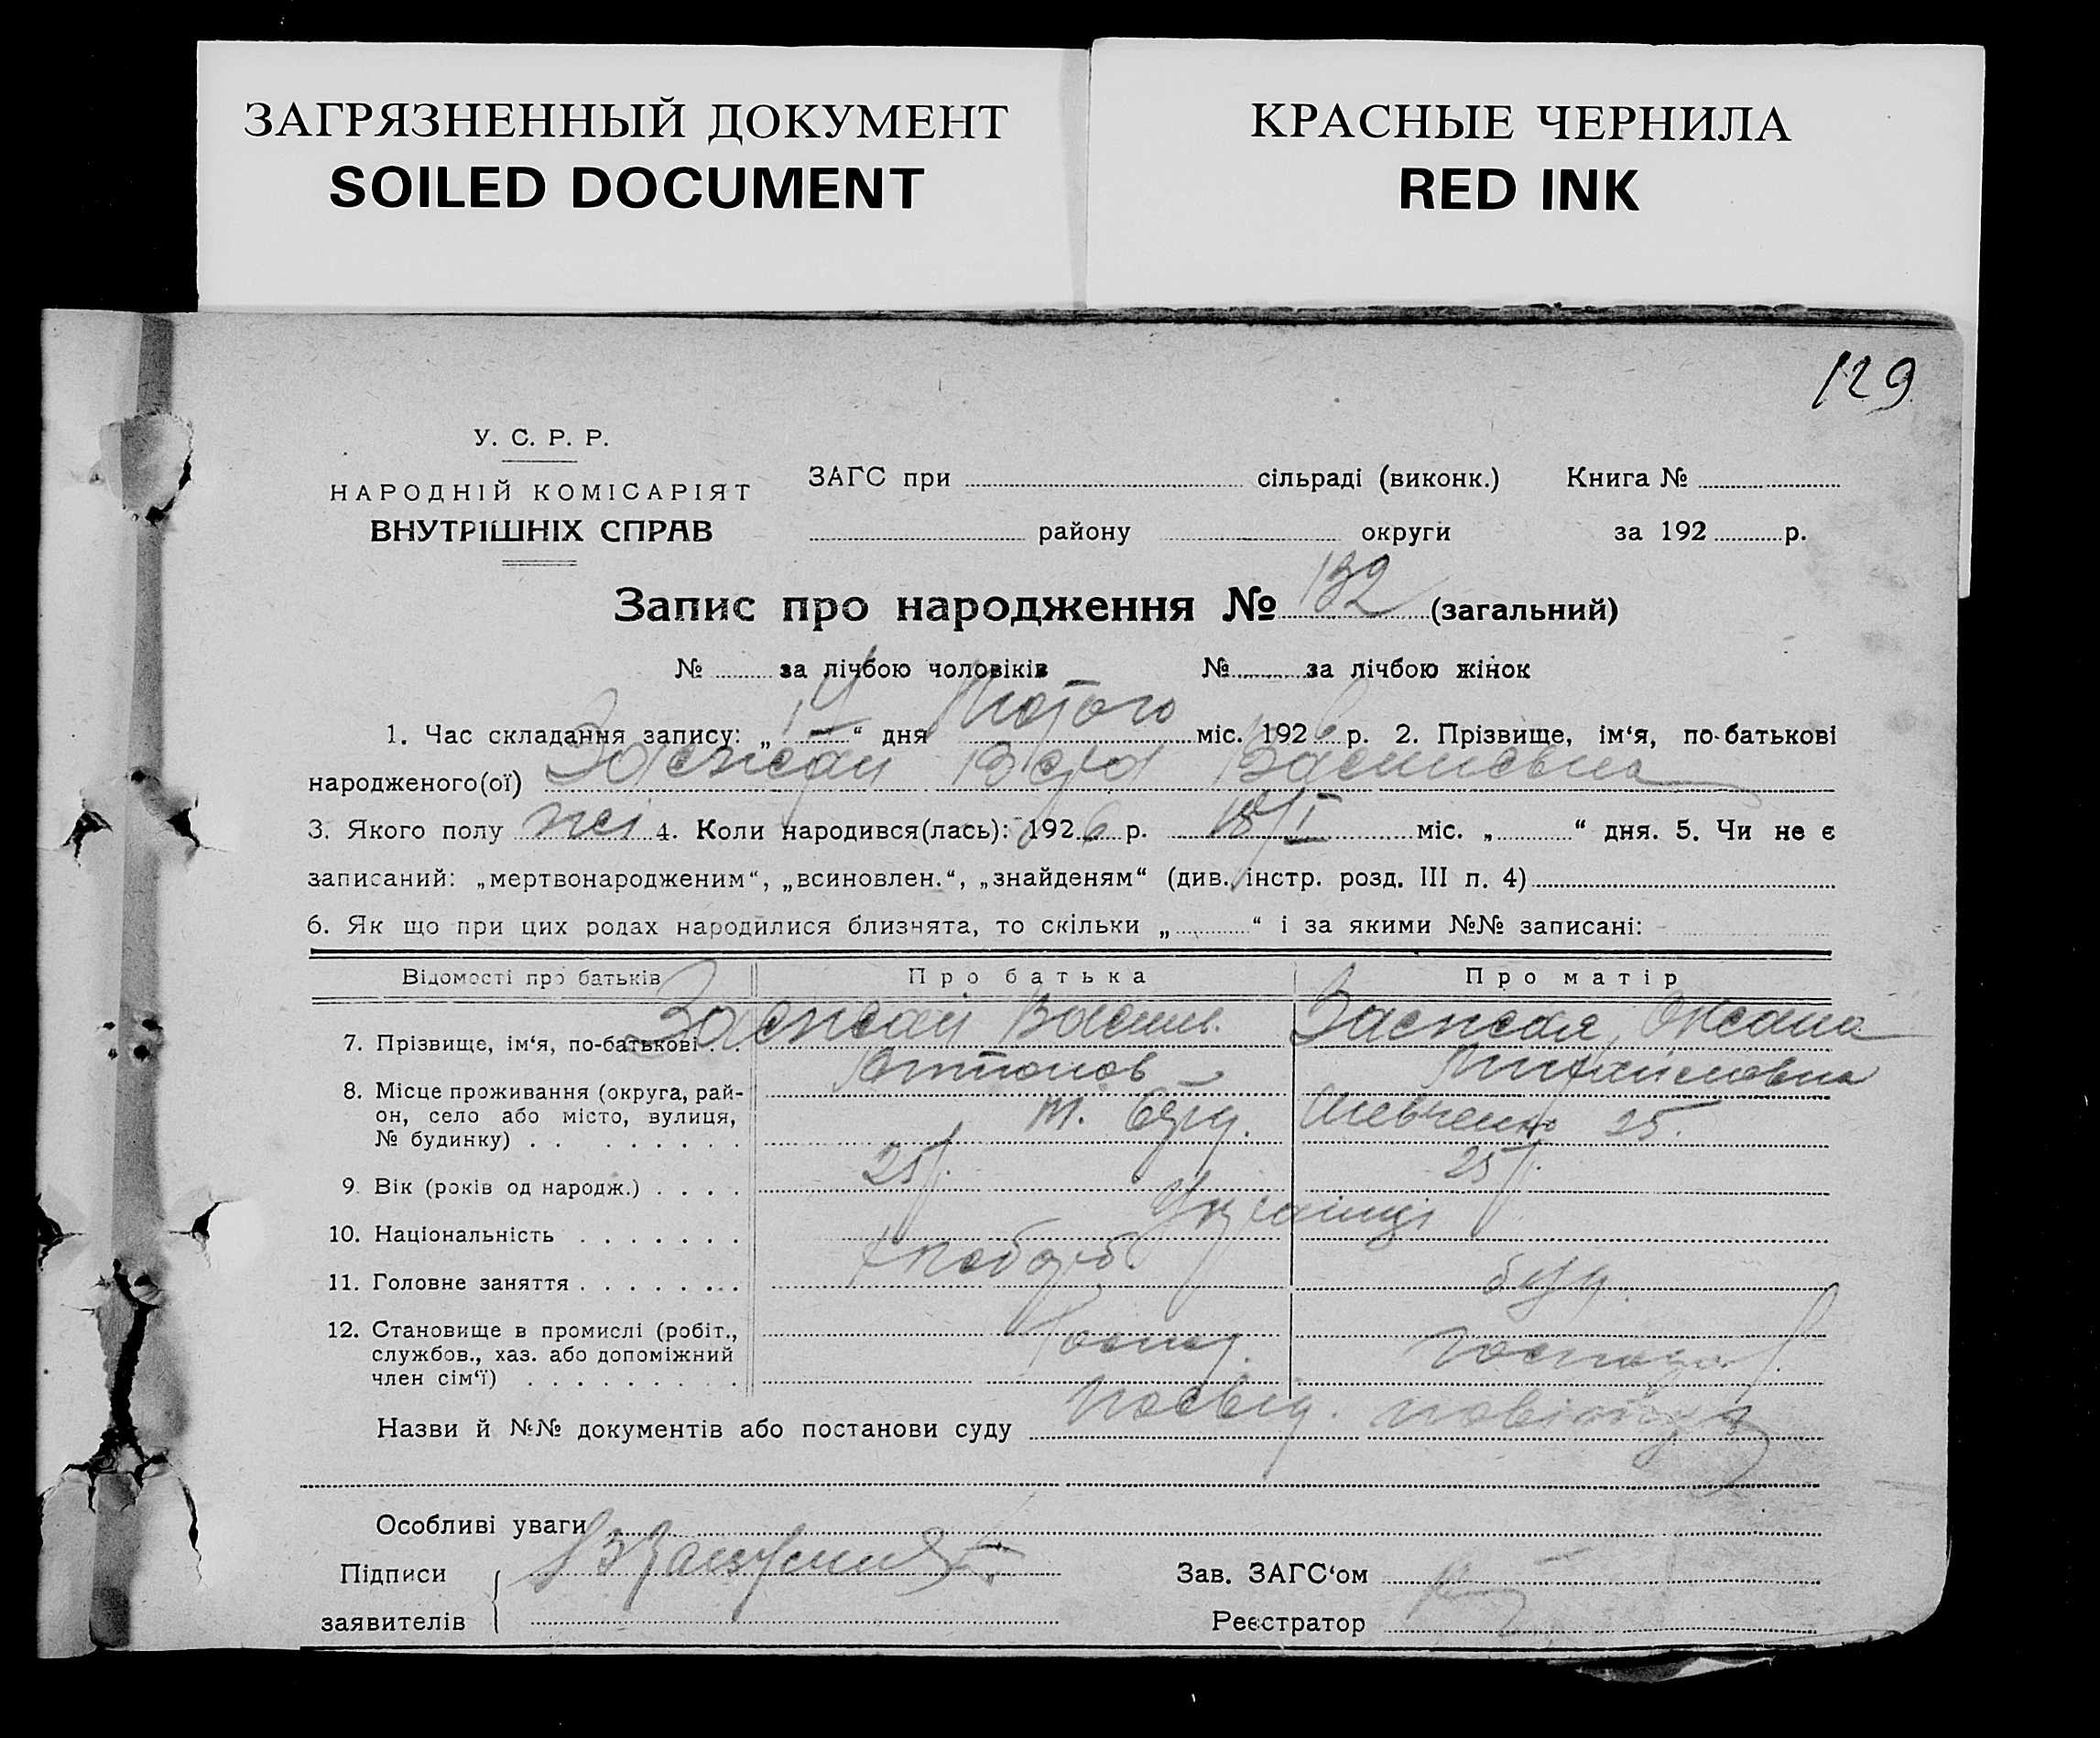 ЗАГРЯЗНЕННЫЙ ДОКУМЕНТ
SOILED DOCUMENT
КРАСНЫЕ ЧЕРНИЛА
RED INK
129
У. С. Р. Р.
НАРОДНІЙ КОМІСАРІЯТ
ВНУТРІШНІХ СПРАВ
ЗАГС при сільраді (виконк.) Книга №
району округи за 192 р.
Запис про народження № 132 (загальний)
№ за лічбою чоловіків № за лічбою жінок
1. Час складання запису: „14“ дня Лютого міс. 1926 р. 2. Прізвище, ім‘я, по-батькові
народженого(ої) Віра Василівна
3. Якого полу жі 4. Коли народився(лась): 1926 р. 18/I міс. „ “ дня. 5. Чи не є
записаний: „мертвонародженим“, „всиновлен.“, „знайденям“ (див. інстр. розд. III п. 4)
6. Як що при цих родах народилися близнята, то скільки „ “ і за якими №№ записані:
Відомості про батьків Про батька Про матір
7. Прізвище, ім‘я, по-батькові . . Васил. Оксана
Антонов Михайловна
8. Місце проживання (округа, район, село або місто, вулиця, № будинку) . . . . . . . . м. Шевченко 25.
9. Вік (років од народж.) . . . . 25 25
10. Національність . . . . . . . Українці
11. Головне заняття . . . . . . . 
12. Становище в промислі (робіт., службов., хаз. або допоміжний член сім‘ї) . . . . . . . . . Господ.
Назви й №№ документів або постанови суду Посвід.
Особливі уваги
Підписи
заявителів
Зав. ЗАГС‘ом
Реєстратор